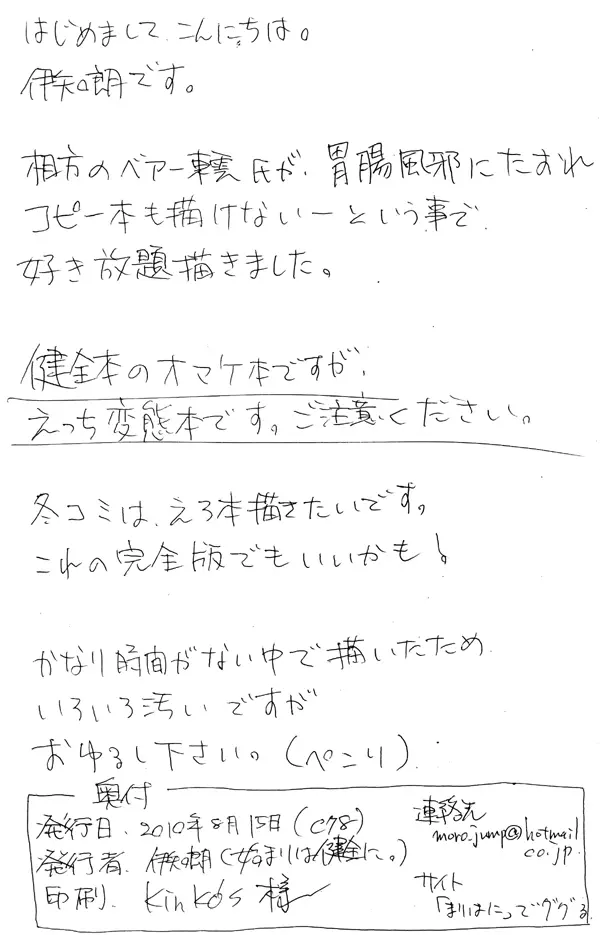 はじめまして、こんにちは。
伊知朗です。
相方のベアー轟氏が、胃腸風邪にたおれ
コピー本も描けないーという事で
好き放題描きました。
健全本のオマケ本ですが、
えっち変態本です。ご注意ください。
冬コミは、えろ本描きたいです。
これの完全版でもいいかも!
かなり時間がない中で描いたため
いろいろ汚いですが
おゆるし下さい。(ぺこり)
奥付
発行日. 2010年8月15日(C78)
発行者. 伊知朗(始まりは健全に。)
印刷. Kinko's 様
連絡先
moro_jump@hotmail
co.jp
サイト
「まりはに」でググる